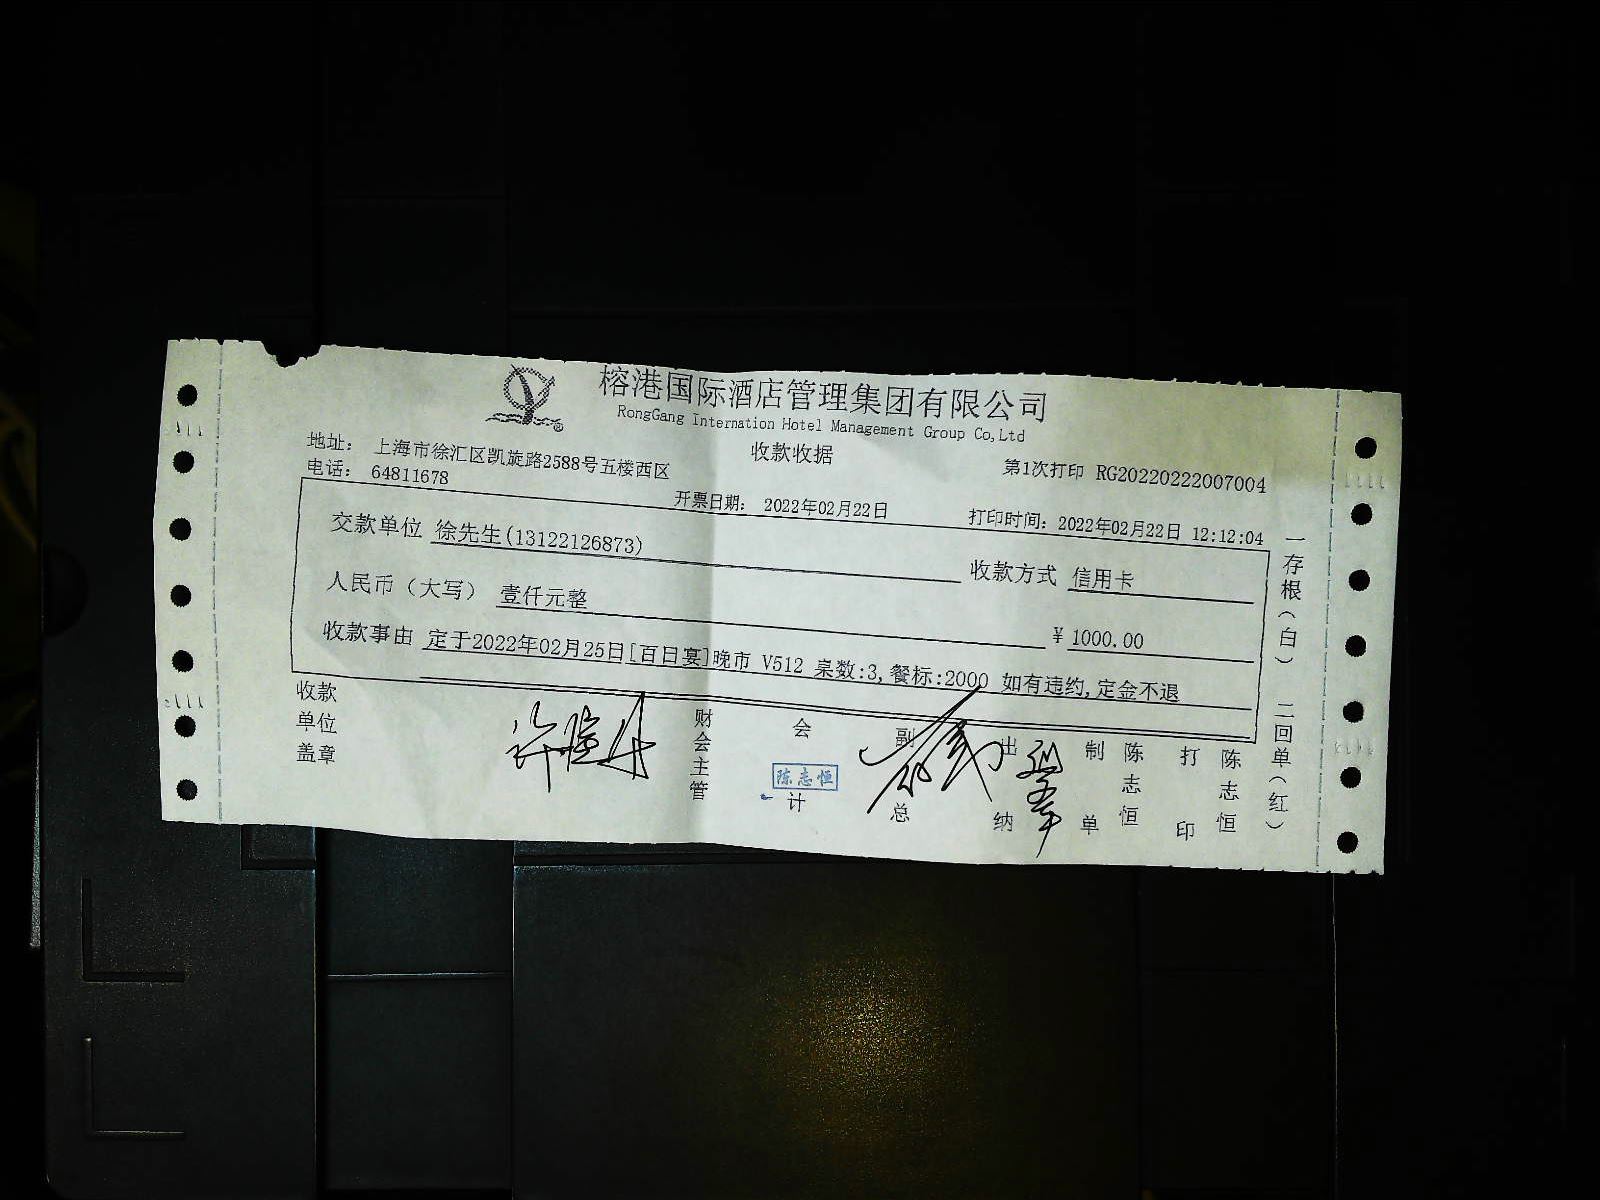 榕港国际酒店管理集团有限公司
RongGang Internation Hotel Management Group Co,Ltd
收款收据
地址： 上海市徐汇区凯旋路2588号五楼西区
第1次打印 RG20220222007004
电话： 64811678
开票日期： 2022年02月22日
打印时间：2022年02月22日 12:12:04
交款单位 徐先生(13122126873)
收款方式 信用卡
人民币（大写） 壹仟元整
¥ 1000.00
收款事由 定于2022年02月25日[百日宴]晚市 V512 桌数:3,餐标:2000 如有违约,定金不退
收款单位盖章
财会主管
会计
陈志恒
副总
出纳
制单
陈志恒
打印
陈志恒
一存根（白） 二回单（红）